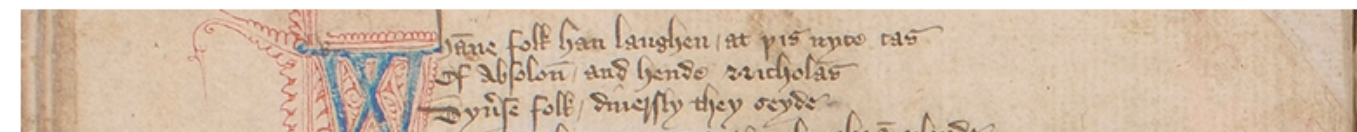 Whāne folk han laughen / at þis nyce cas
Of Absolon̄ / and hende Nicholas
Dyu̓se folk / diuersly they seyde